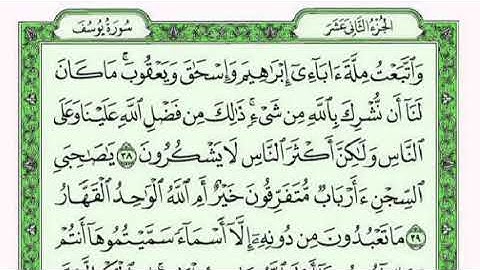 الجزء الثاني عشر
سورة يوسف
وَٱتَّبَعْتُ مِلَّةَ ءَابَآءِىٓ إِبْرَٰهِيمَ وَإِسْحَٰقَ وَيَعْقُوبَ ۚ مَا كَانَ
لَنَآ أَن نُّشْرِكَ بِٱللَّهِ مِن شَىْءٍ ۚ ذَٰلِكَ مِن فَضْلِ ٱللَّهِ عَلَيْنَا وَعَلَى
ٱلنَّاسِ وَلَٰكِنَّ أَكْثَرَ ٱلنَّاسِ لَا يَشْكُرُونَ ٣٨ يَٰصَىٰحِبَىِ
ٱلسِّجْنِ ءَأَرْبَابٌ مُّتَفَرِّقُونَ خَيْرٌ أَمِ ٱللَّهُ ٱلْوَٰحِدُ ٱلْقَهَّارُ
٣٩ مَا تَعْبُدُونَ مِن دُونِهِۦٓ إِلَّآ أَسْمَآءً سَمَّيْتُمُوهَآ أَنتُمْ